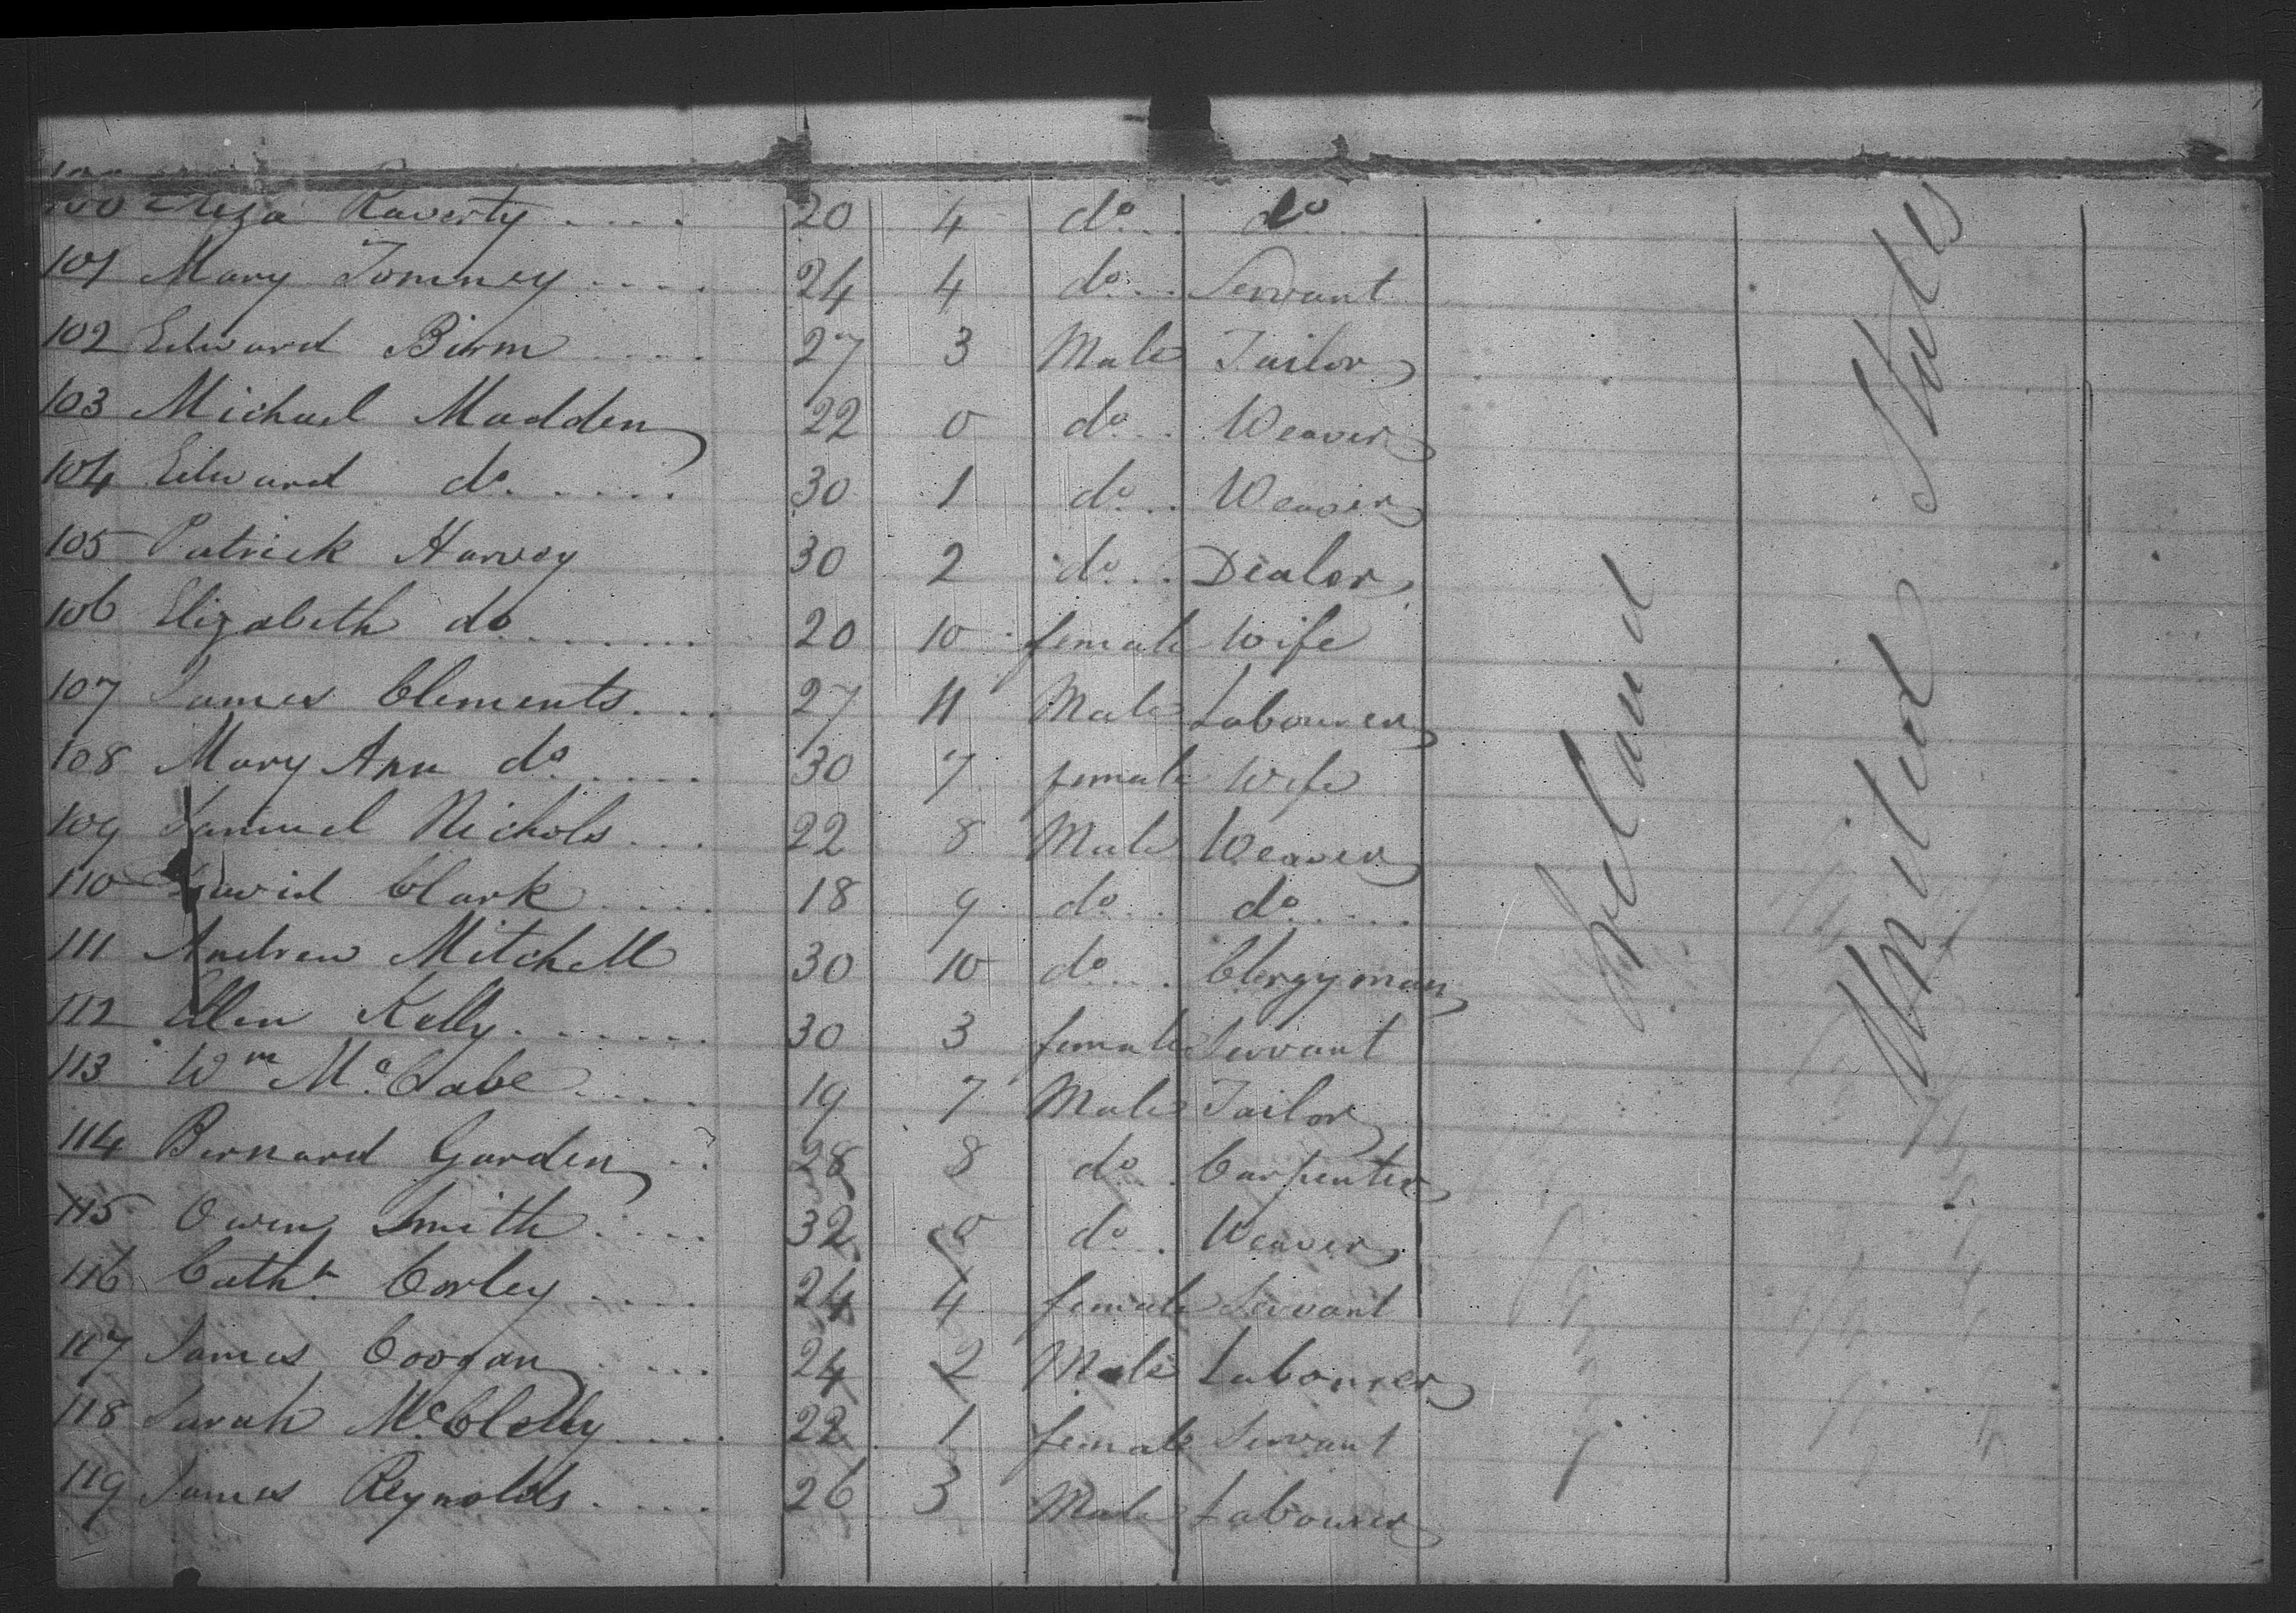 100 Eliza Raverty .... 20 4 do... do....
101 Mary Tommey .... 24 4 do... Servant
102 Edward Birm .... 27 3 Male Tailor
103 Michael Madden 22 0 do... Weaver
104 Edward do..... 30 1 do... Weaver
105 Patrick Harvey 30 2 do... Dealer
106 Elizabeth do ...... 20 10 female Wife
107 James Clements.... 27 11 Male Labourer
108 Mary Ann do ..... 30 7 female Wife
109 Samuel Nichols.... 22 8 Male Weaver
110 David Clark .... 18 9 do... do....
111 Andrew Mitchell 30 10 do.... Clergyman
112 Ellen Kelly...... 30 3 female Servant
113 Wm McCabe .... 19 7 Male Tailor
114 Bernard Garden .. 28 8 do... Carpenter
115 Owen Smith .... 32 0 do... Weaver
116 Cathn Corley .... 24 4 female Servant
117 James Coogan .... 24 2 Male Labourer
118 Sarah McClelly .... 22 1 female Servant
119 James Reynolds .... 26 3 Male Labourer
Ireland
United States